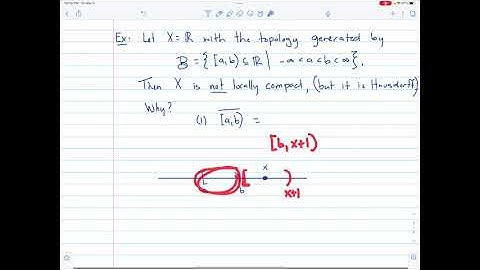 Ex: Let X = ℝ with the topology generated by
B = { [a,b) ⊆ ℝ | -∞ < a < b < ∞ }.
Then X is not locally compact, (but it is Hausdorff)
Why?
(1) [a,b) =
[b, x+1)
x
[ )
b
x+1